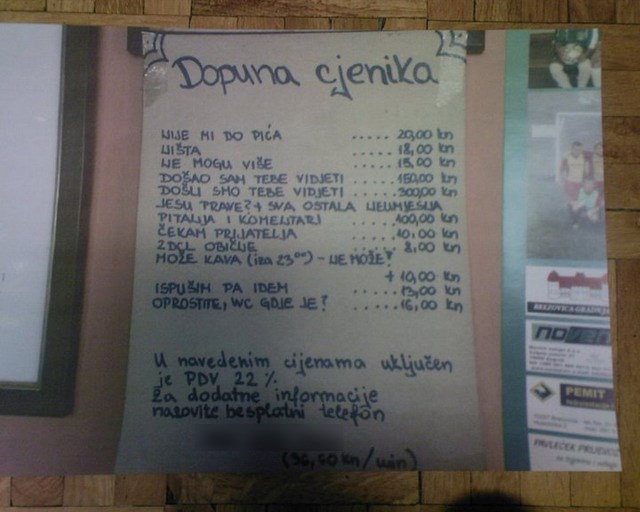 Dopuna cjenika
NIJE MI DO PIĆA ..... 20,00 kn
NIŠTA ..... 18,00 kn
NE MOGU VIŠE ..... 15,00 kn
DOŠAO SAM TEBE VIDJETI ..... 150,00 kn
DOŠLI SMO TEBE VIDJETI ..... 300,00 kn
JESU PRAVE? + SVA OSTALA NEUMJESNA
PITANJA I KOMENTARI ..... 400,00 kn
ČEKAM PRIJATELJA ..... 10,00 kn
2DCL OBIČNE ..... 8,00 kn
MOŽE KAVA (iza 23⁰⁰) - NE MOŽE!
+ 10,00 kn
ISPUŠIM PA IDEM ..... 13,00 kn
OPROSTITE, WC GDJE JE? ..... 16,00 kn
U navedenim cijenama uključen
je PDV 22 %.
Za dodatne informacije
nazovite besplatni telefon
(96,60 kn/min)
BREZOVICA-GRADNJA
PEMIT
PAVLEČEK PRIJEVOZ